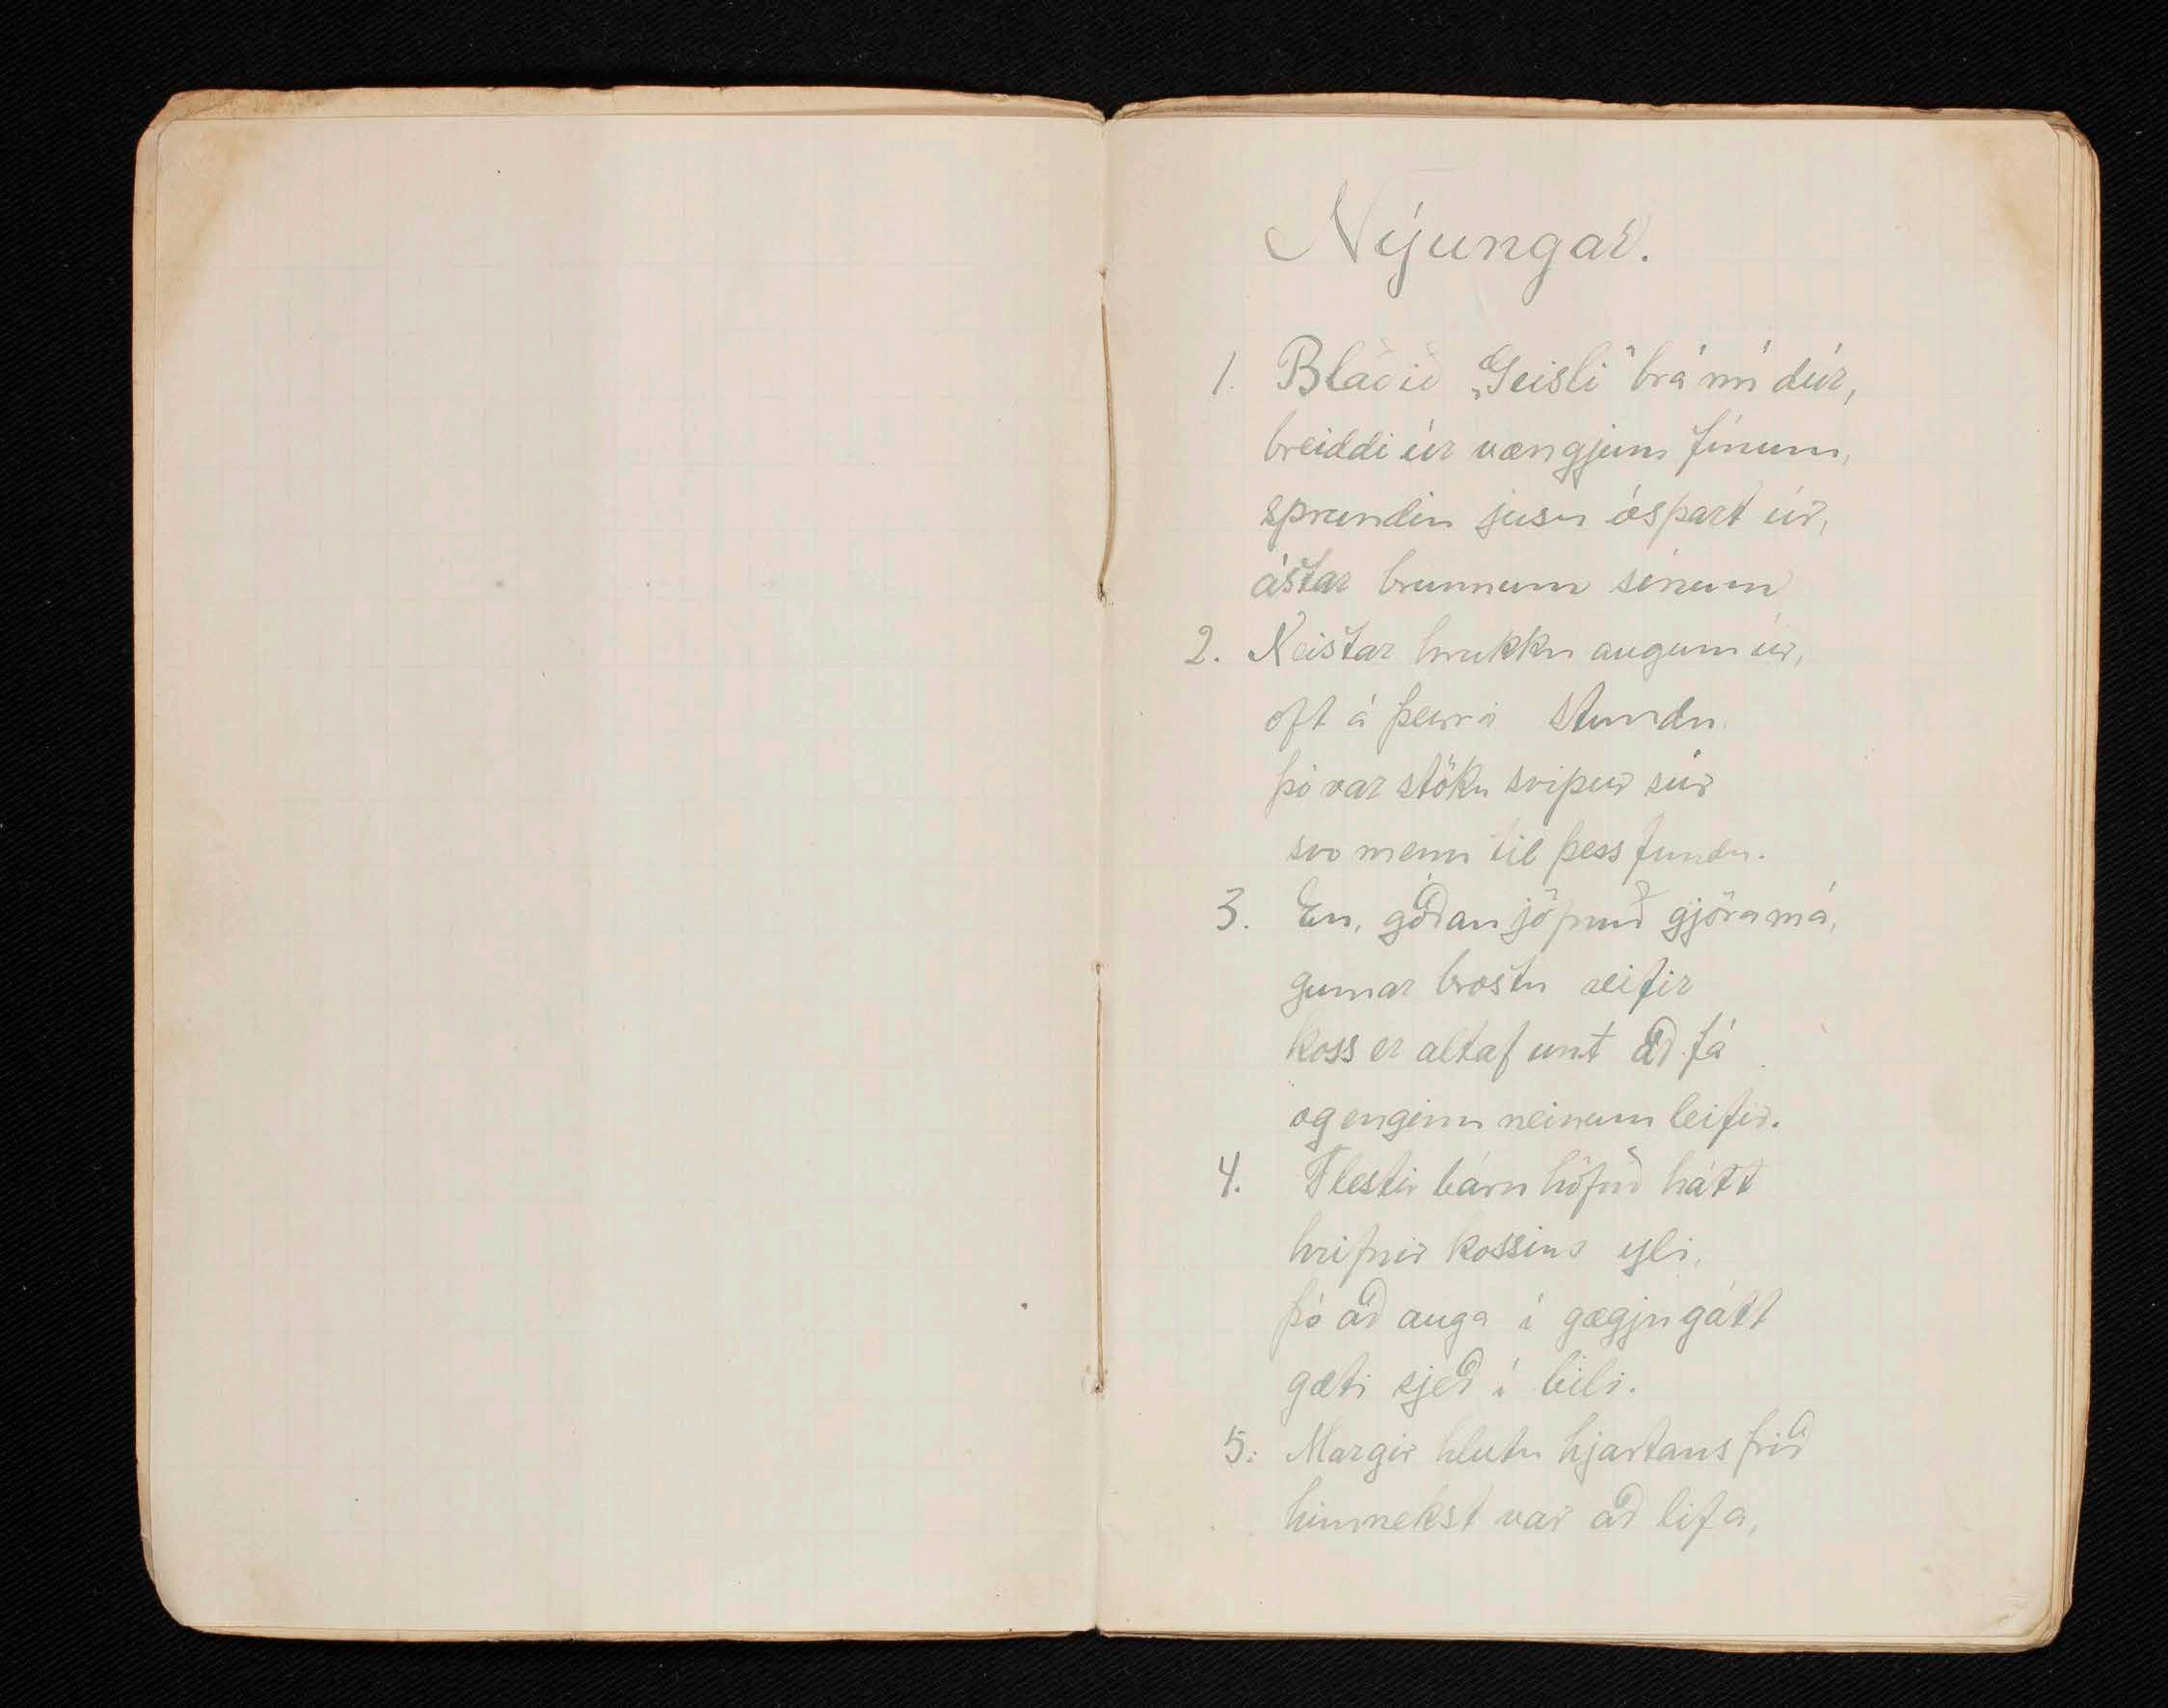 Nýungar.
1. Blaðið „Geisli" brá nú dúr,
breiddi úr vængjum fínum,
sprundin jusu óspart úr,
ástar brunnum sínum
2. Neistar hrukku augum úr,
oft á þeirri stundu.
þó var stöku svipur súr
svo menn til þess fundu.
3. En, góðan jöfnuð gjöra má,
gumar brostu reifir
koss er altaf unt að fá
og enginn neinum leifir.
4. Flestir báru höfuð hátt
hrifnir kossins yli,
þó að auga í gægju gátt
gæti sjeð í bili.
5: Margir hlutu hjartans frið
himnekst var að lifa,